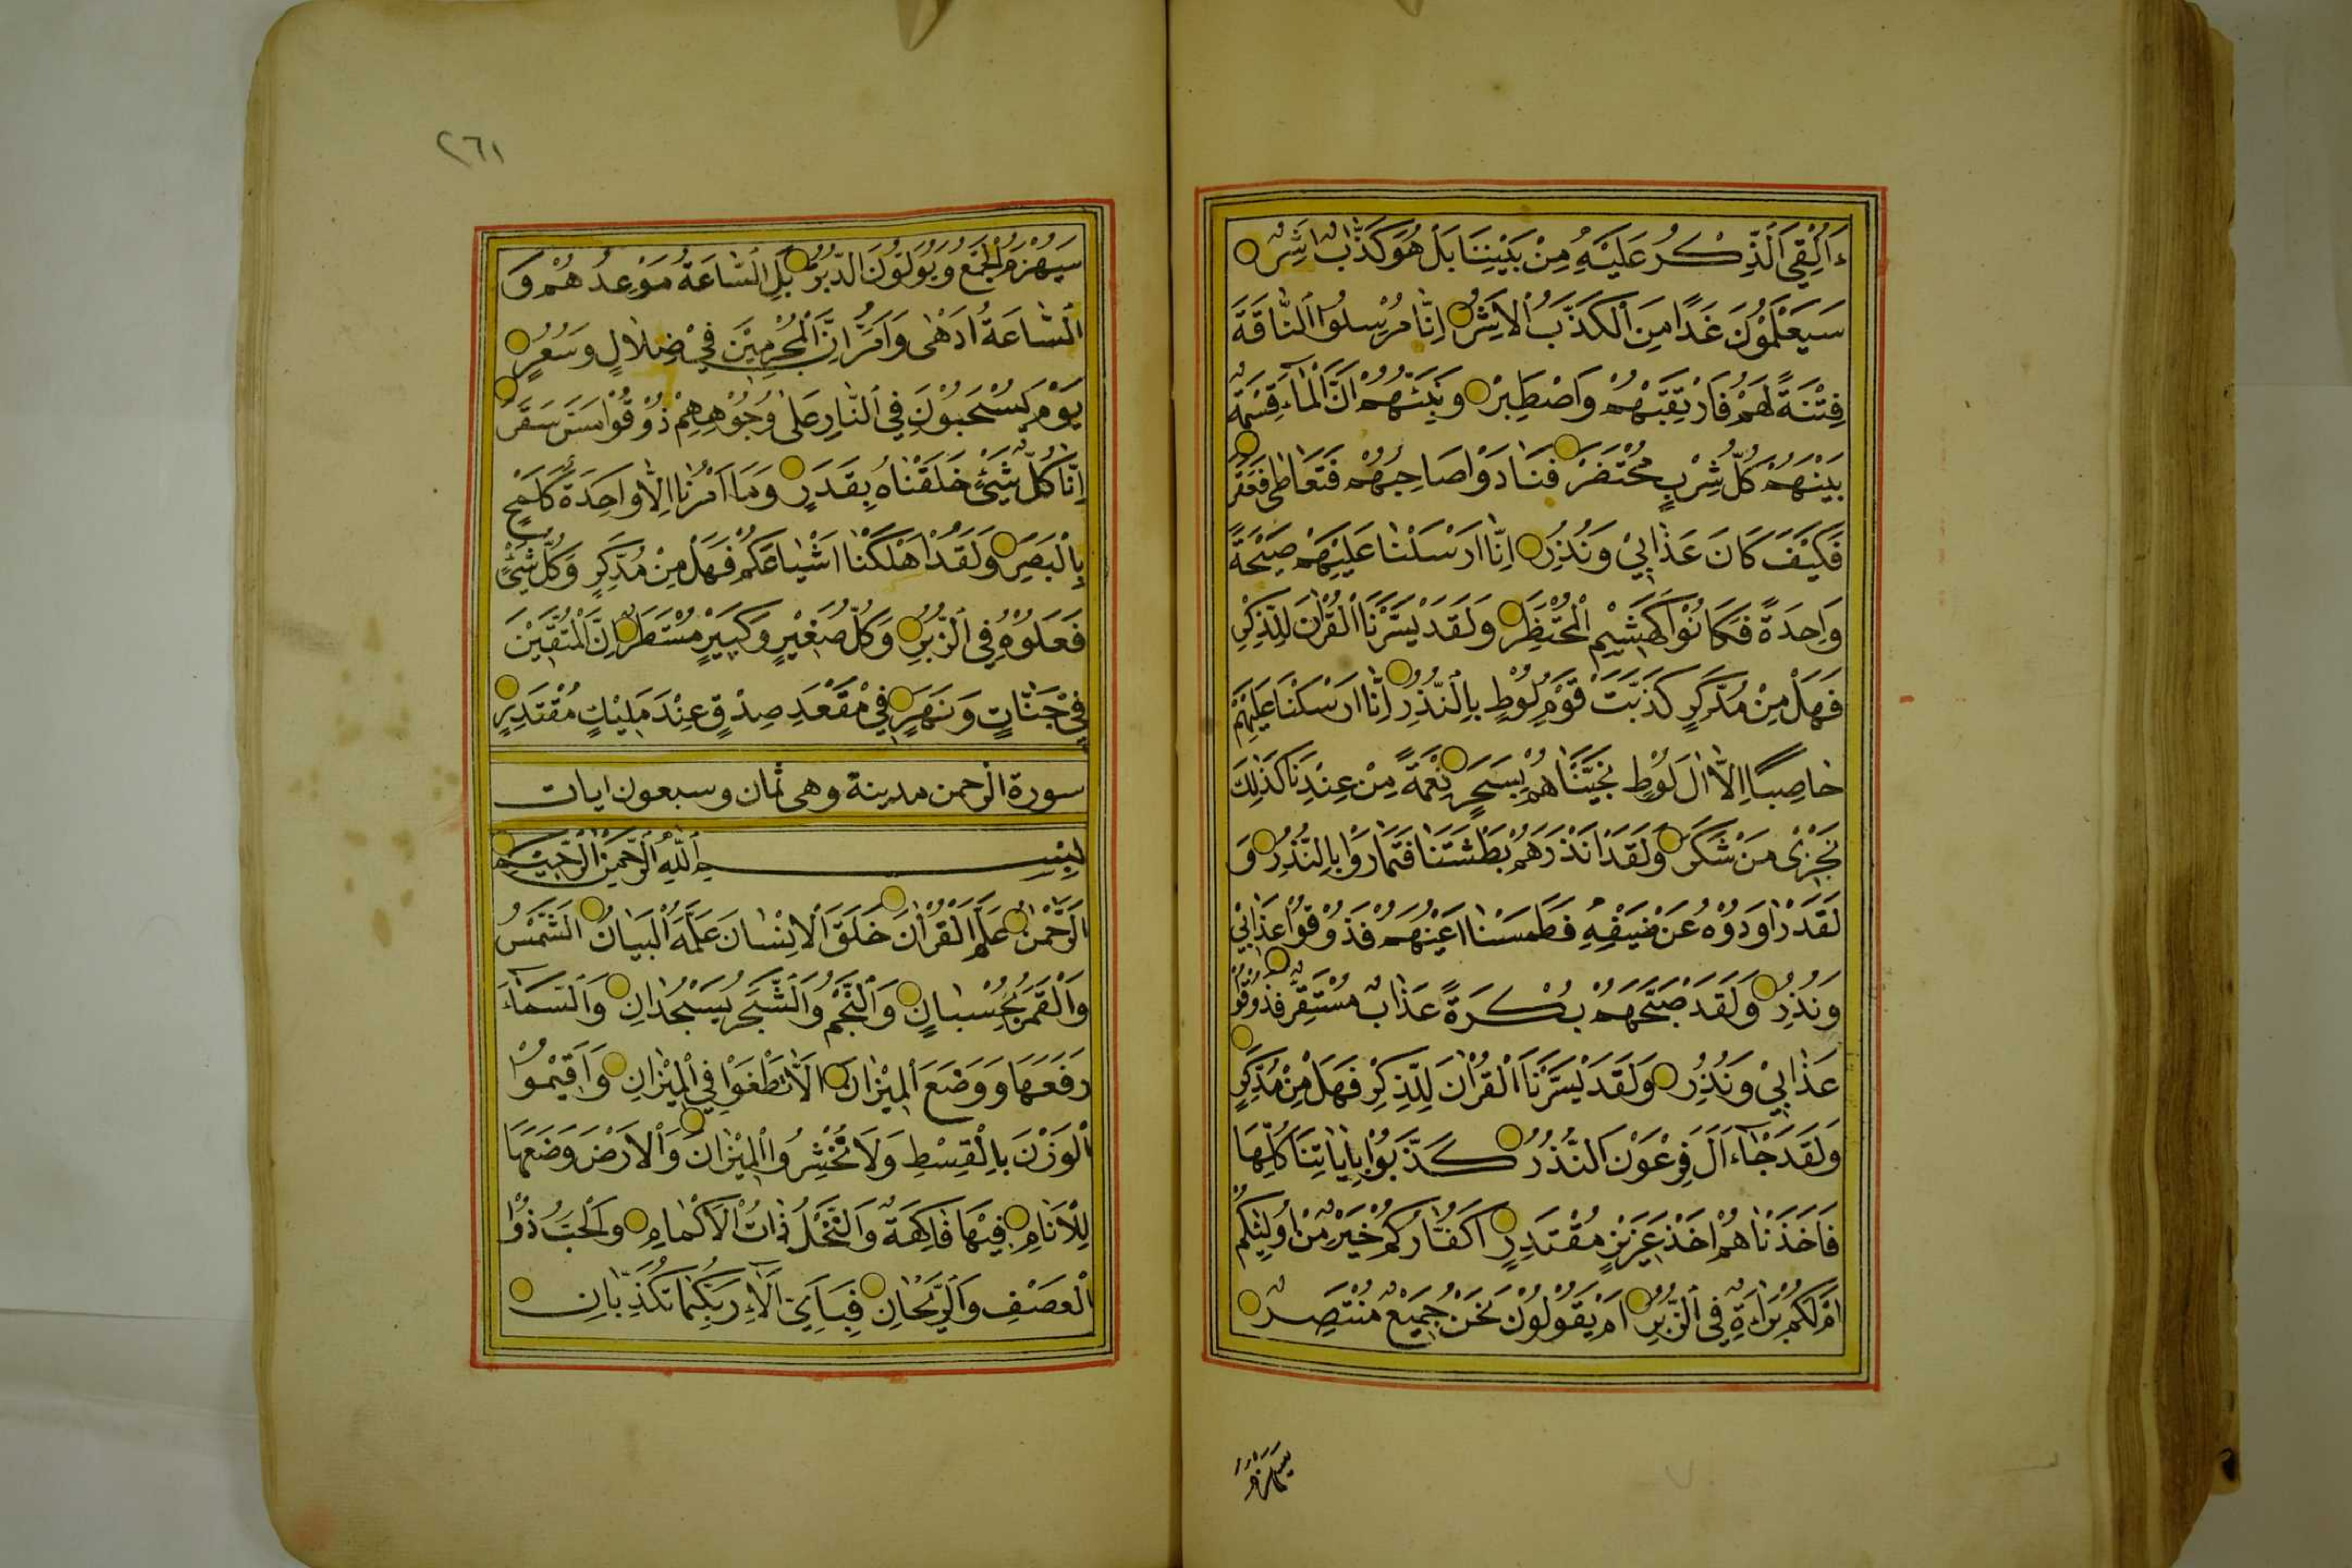 ءَاُلْقِيَ الذِّكْرُ عَلَيْهِ مِنْ بَيْنِنَا بَلْ هُوَ كَذَّابٌ اَشِرٌ
سَيَعْلَمُوْنَ غَدًا مِنَ الْكَذَّابُ الْاَشِرُ اِنَّا مُرْسِلُوا النَّاقَةَ
فِتْنَةً لَهُمْ فَارْتَقِبْهُمْ وَاصْطَبِرْ وَنَبِّئْهُمْ اَنَّ الْمَاءَ قِسْمَةٌ
بَيْنَهُمْ كُلُّ شِرْبٍ مُحْتَضَرٌ فَنَادَوْا صَاحِبَهُمْ فَتَعَاطٰى فَعَقَرَ
فَكَيْفَ كَانَ عَذَابِيْ وَنُذُرِ اِنَّا اَرْسَلْنَا عَلَيْهِمْ صَيْحَةً
وَاحِدَةً فَكَانُوْا كَهَشِيْمِ الْمُحْتَظِرِ وَلَقَدْ يَسَّرْنَا الْقُرْاٰنَ لِلذِّكْرِ
فَهَلْ مِنْ مُدَّكِرٍ كَذَّبَتْ قَوْمُ لُوْطٍ بِالنُّذُرِ اِنَّا اَرْسَلْنَا عَلَيْهِمْ
حَاصِبًا اِلَّا اٰلَ لُوْطٍ نَجَّيْنَاهُمْ بِسَحَرٍ نِعْمَةً مِنْ عِنْدِنَا كَذٰلِكَ
نَجْزِى مَنْ شَكَرَ وَلَقَدْ اَنْذَرَهُمْ بَطْشَتَنَا فَتَمَارَوْا بِالنُّذُرِ وَ
لَقَدْ رَاوَدُوْهُ عَنْ ضَيْفِهِ فَطَمَسْنَا اَعْيُنَهُمْ فَذُوْقُوْا عَذَابِيْ
وَنُذُرِ وَلَقَدْ صَبَّحَهُمْ بُكْرَةً عَذَابٌ مُسْتَقِرٌّ فَذُوْقُوْا
عَذَابِيْ وَنُذُرِ وَلَقَدْ يَسَّرْنَا الْقُرْاٰنَ لِلذِّكْرِ فَهَلْ مِنْ مُدَّكِرٍ
وَلَقَدْ جَاءَ اٰلَ فِرْعَوْنَ النُّذُرُ كَذَّبُوْا بِاٰيَاتِنَا كُلِّهَا
فَاَخَذْنَاهُمْ اَخْذَ عَزِيْزٍ مُقْتَدِرٍ اَكُفَّارُكُمْ خَيْرٌ مِنْ اُولٰئِكُمْ
اَمْ لَكُمْ بَرَاءَةٌ فِي الزُّبُرِ اَمْ يَقُوْلُوْنَ نَحْنُ جَمِيْعٌ مُنْتَصِرٌ
سَيُهْزَمُ
٢٦١
سَيُهْزَمُ الْجَمْعُ وَيُوَلُّوْنَ الدُّبُرَ بَلِ السَّاعَةُ مَوْعِدُهُمْ وَ
السَّاعَةُ اَدْهٰى وَاَمَرُّ اِنَّ الْمُجْرِمِيْنَ فِيْ ضَلَالٍ وَسُعُرٍ
يَوْمَ يُسْحَبُوْنَ فِي النَّارِ عَلٰى وُجُوْهِهِمْ ذُوْقُوْا مَسَّ سَقَرَ
اِنَّا كُلَّ شَيْءٍ خَلَقْنَاهُ بِقَدَرٍ وَمَا اَمْرُنَا اِلَّا وَاحِدَةٌ كَلَمْحٍ
بِالْبَصَرِ وَلَقَدْ اَهْلَكْنَا اَشْيَاعَكُمْ فَهَلْ مِنْ مُدَّكِرٍ وَكُلُّ شَيْءٍ
فَعَلُوْهُ فِي الزُّبُرِ وَكُلُّ صَغِيْرٍ وَكَبِيْرٍ مُسْتَطَرٌ اِنَّ الْمُتَّقِيْنَ
فِيْ جَنَّاتٍ وَنَهَرٍ فِيْ مَقْعَدِ صِدْقٍ عِنْدَ مَلِيْكٍ مُقْتَدِرٍ
سورة الرحمن مدينة وهى ثمان وسبعون ايات
بِسْمِ اللّٰهِ الرَّحْمٰنِ الرَّحِيْمِ
اَلرَّحْمٰنُ عَلَّمَ الْقُرْاٰنَ خَلَقَ الْاِنْسَانَ عَلَّمَهُ الْبَيَانَ اَلشَّمْسُ
وَالْقَمَرُ بِحُسْبَانٍ وَالنَّجْمُ وَالشَّجَرُ يَسْجُدَانِ وَالسَّمَاءَ
رَفَعَهَا وَوَضَعَ الْمِيْزَانَ اَلَّا تَطْغَوْا فِي الْمِيْزَانِ وَاَقِيْمُوا
الْوَزْنَ بِالْقِسْطِ وَلَا تُخْسِرُوا الْمِيْزَانَ وَالْاَرْضَ وَضَعَهَا
لِلْاَنَامِ فِيْهَا فَاكِهَةٌ وَالنَّخْلُ ذَاتُ الْاَكْمَامِ وَالْحَبُّ ذُو
الْعَصْفِ وَالرَّيْحَانِ فَبِاَيِّ اٰلَاءِ رَبِّكُمَا تُكَذِّبَانِ